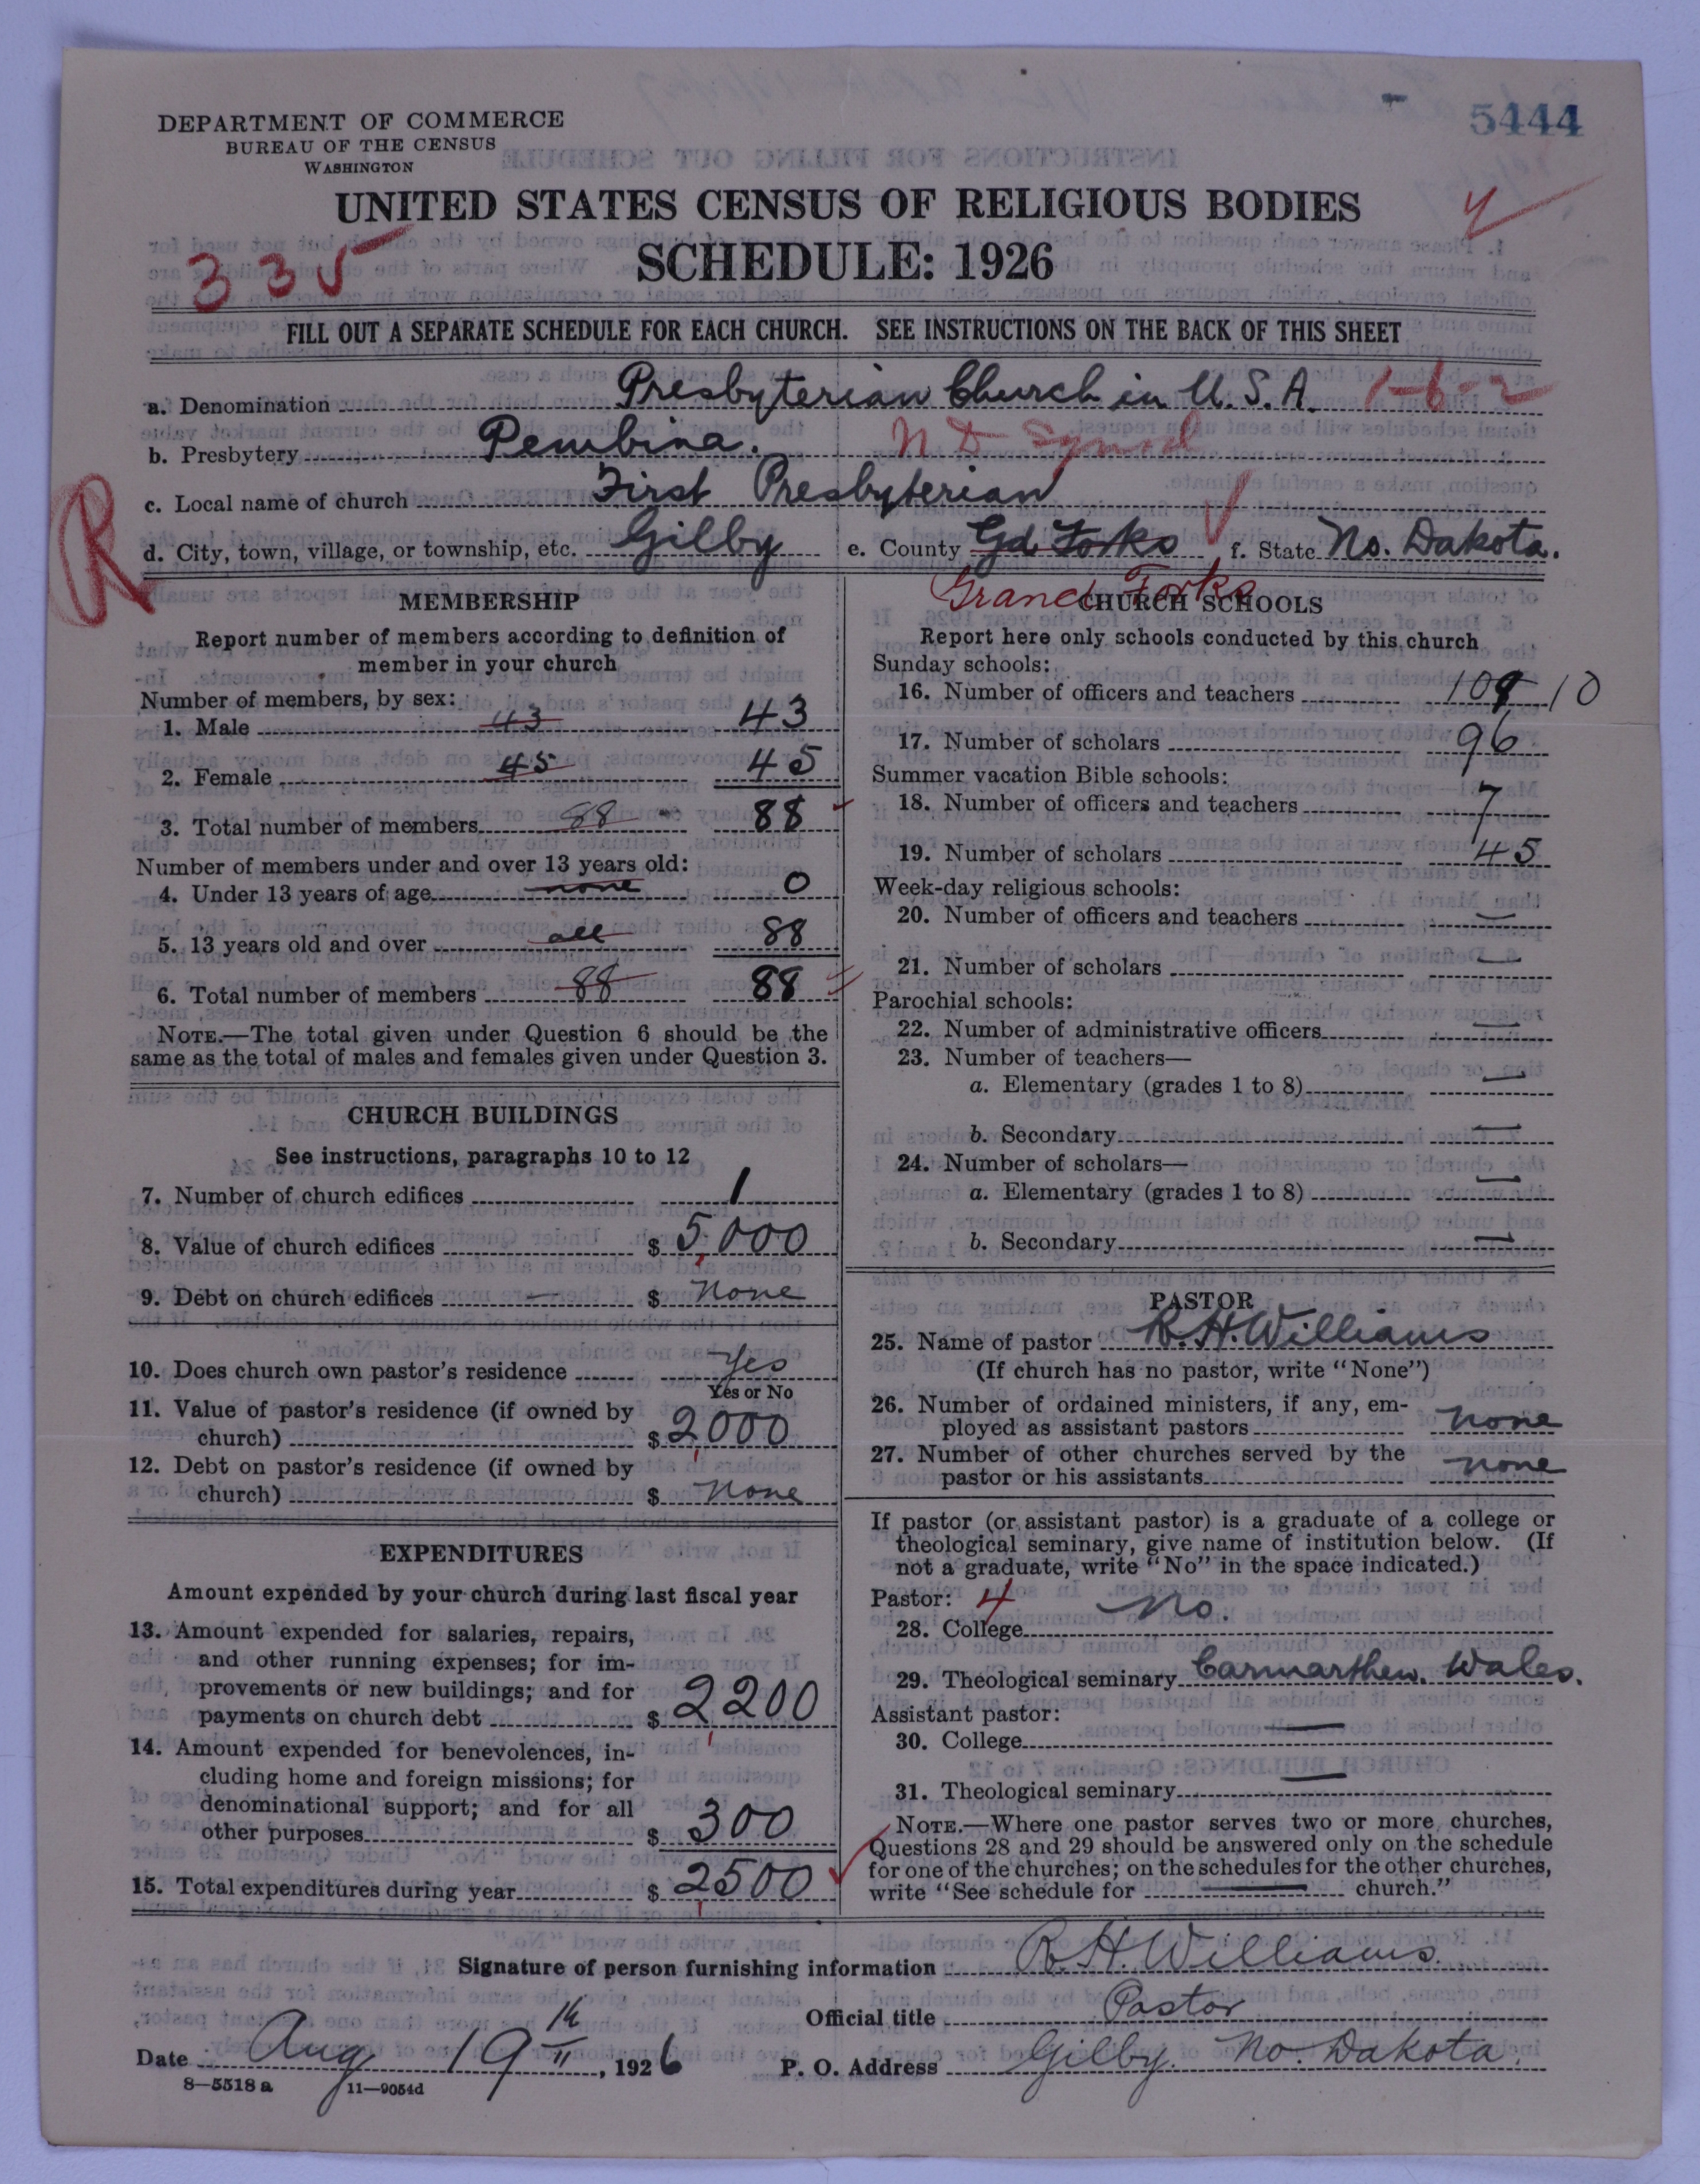 5444
DEPARTMENT OF COMMERCE
BUREAU OF THE CENSUS
WASHINGTON
UNITED STATES CENSUS OF RELIGIOUS BODIES
SCHEDULE: 1926
335
FILL OUT A SEPARATE SCHEDULE FOR EACH CHURCH. SEE INSTRUCTIONS ON THE BACK OF THIS SHEET
a. Denomination Presbyterian Church in U.S.A. 1-6-2
b. Presbytery Pembina. N D Synod
c. Local name of church First Presbyterian
R
d. City, town, village, or township, etc. Gilby e. County Gd Forks f. State No. Dakota.
Grand Forks
MEMBERSHIP
Report number of members according to definition of
member in your church
Number of members, by sex:
1. Male 43 43
2. Female 45 45
3. Total number of members 88 88
Number of members under and over 13 years old:
4. Under 13 years of age none 0
5. 13 years old and over all 88
6. Total number of members 88 88
NOTE.—The total given under Question 6 should be the
same as the total of males and females given under Question 3.
CHURCH BUILDINGS
See instructions, paragraphs 10 to 12
7. Number of church edifices 1
8. Value of church edifices $ 5,000
9. Debt on church edifices — $ None
10. Does church own pastor's residence Yes
Yes or No
11. Value of pastor's residence (if owned by
church) $ 2,000
12. Debt on pastor's residence (if owned by
church) $ None
EXPENDITURES
Amount expended by your church during last fiscal year
13. Amount expended for salaries, repairs,
and other running expenses; for im-
provements or new buildings; and for
payments on church debt $ 2,200
14. Amount expended for benevolences, in-
cluding home and foreign missions; for
denominational support; and for all
other purposes $ 300
15. Total expenditures during year $ 2,500
CHURCH SCHOOLS
Report here only schools conducted by this church
Sunday schools:
16. Number of officers and teachers 10
17. Number of scholars 96
Summer vacation Bible schools:
18. Number of officers and teachers 7
19. Number of scholars 45
Week-day religious schools:
20. Number of officers and teachers —
21. Number of scholars —
Parochial schools:
22. Number of administrative officers —
23. Number of teachers—
a. Elementary (grades 1 to 8) —
b. Secondary —
24. Number of scholars—
a. Elementary (grades 1 to 8) —
b. Secondary —
PASTOR
25. Name of pastor R.H. Williams
(If church has no pastor, write "None")
26. Number of ordained ministers, if any, em-
ployed as assistant pastors none
27. Number of other churches served by the
pastor or his assistants none
If pastor (or assistant pastor) is a graduate of a college or
theological seminary, give name of institution below. (If
not a graduate, write "No" in the space indicated.)
Pastor: 4
28. College No.
29. Theological seminary Carmarthen. Wales.
Assistant pastor:
30. College —
31. Theological seminary —
NOTE.—Where one pastor serves two or more churches,
Questions 28 and 29 should be answered only on the schedule
for one of the churches; on the schedules for the other churches,
write "See schedule for — church."
Signature of person furnishing information R.H. Williams.
Official title Pastor
Date Aug 19th, 1926 P. O. Address Gilby. No. Dakota.
8—5518 a 11—9054d